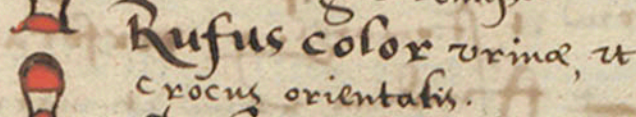 Rufus color vrinæ, ut
crocus orientalis.